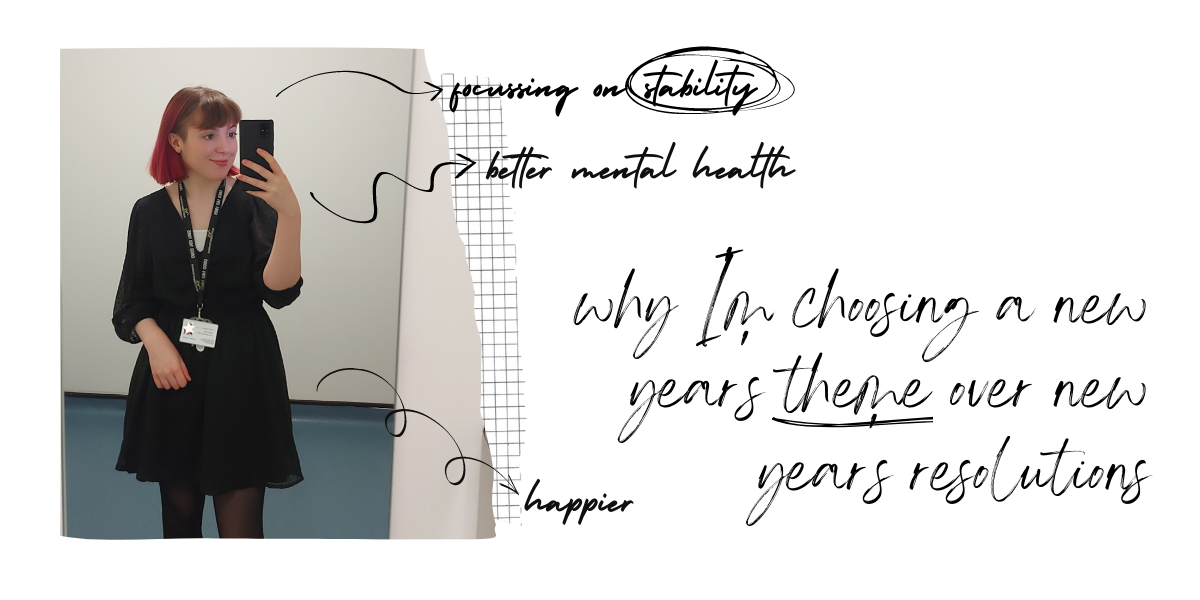 focussing on stability
better mental health
why I'm choosing a new
years theme over new
years resolutions
happier